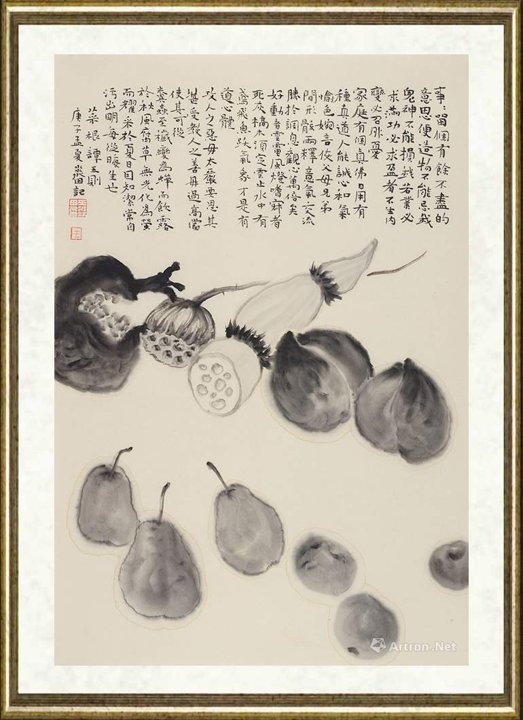 事：留個有餘不盡的
意思便造物不能忌我
鬼神不能損我若業必
求滿功必求盈者不生内
變必召外憂
家庭有個真佛日用有
種真道人能誠心和氣
愉色婉言使父母兄弟
間形骸兩釋意氣交流
勝於調息觀心萬倍矣
好動者雲電風燈嗜寂者
死灰槁木須定雲止水中有
鳶飛魚躍氣象才是有
道心體
攻人之惡毋太嚴要思其
堪受教人之善毋過高當
使其可從
糞蟲至穢變為蟬而飲露
於秋風腐草無光化為螢
而耀采於夏月因知潔常自
污出明每從晦生也
菜根譚五則
庚子孟夏記
Artron.Net